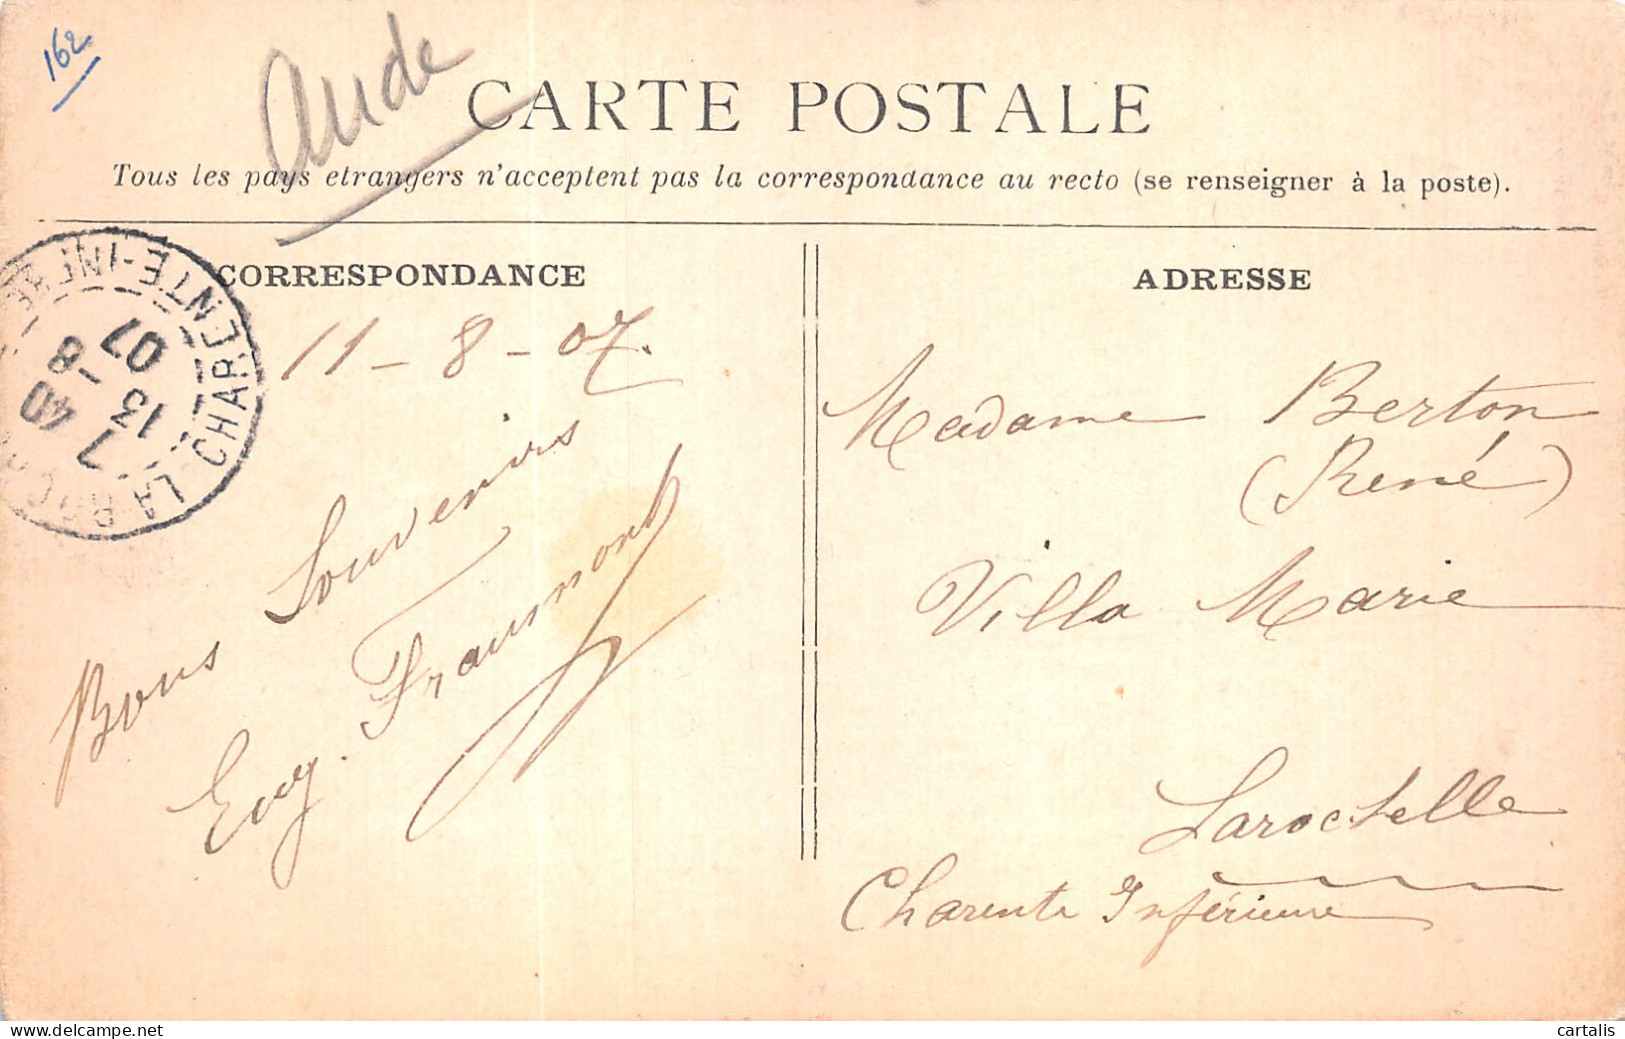 162
Aude
CARTE POSTALE
Tous les pays etrangers n'acceptent pas la correspondance au recto (se renseigner à la poste).
CORRESPONDANCE
11 - 8 - 07.
Bons Souvenirs
Eug. Fraumont
LA ROCH
CHARENTE-INFRE
7 40
13 - 8
07
ADRESSE
Madame Berton
(René)
Villa Marie
Larochelle
Charente Inférieure
delcampe.net
cartalis